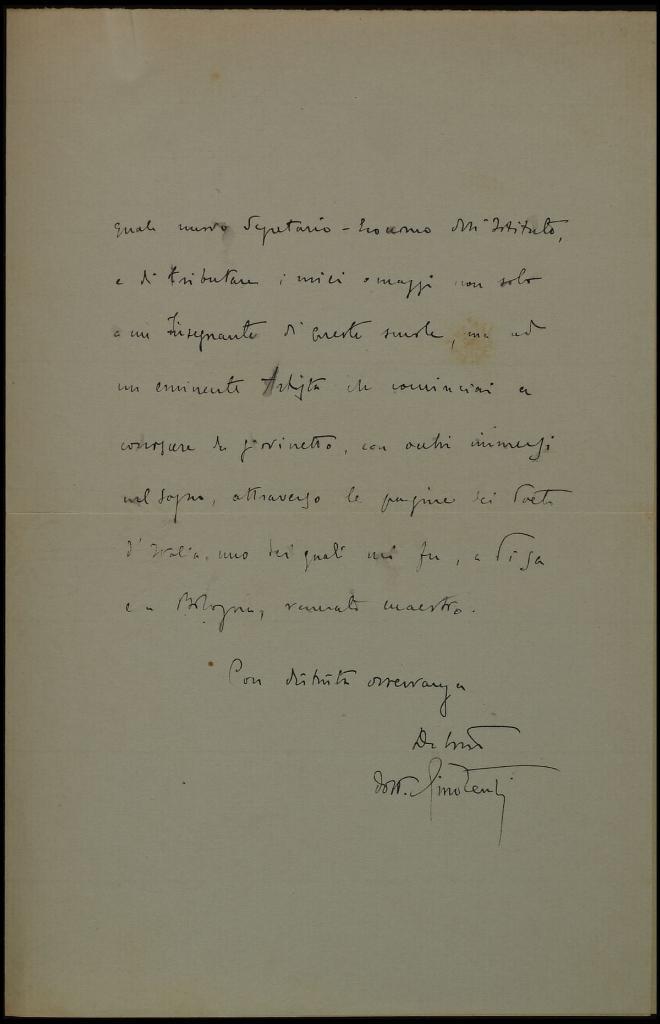 quale nuovo Segretario-Economo dell'Istituto,
e di tributare i miei omaggi non solo
a un Insegnante di queste scuole, ma ad
un eminente Artista che cominciai a
conoscere da giovinetto, con occhi immersi
nel sogno, attraverso le pagine dei Poeti
d'Italia, uno dei quali mi fu, a Pisa
e a Bologna, venerato maestro.
Con distinta osservanza
Dott. Gino